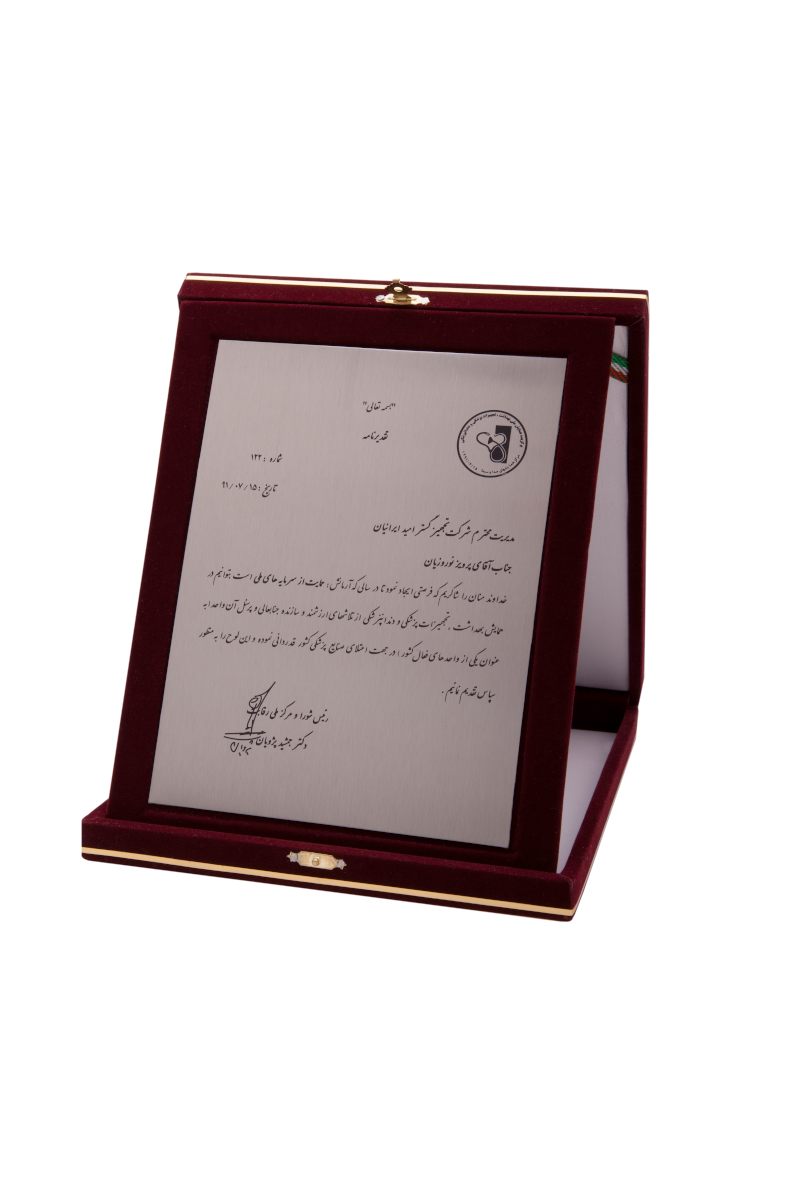 "بسمه تعالی"
تقدیرنامه
شماره : ۱۲۲
تاریخ : ۹۱/۰۷/۱۵
مدیریت محترم شرکت تجهیز گستر امید ایرانیان
جناب آقای پرویز نوروزیان
خداوند منان را شاکریم که فرصتی ایجاد نمود تا در سالی که آرمانش؛ حمایت از سرمایه های ملی است بتوانیم در
همایش بهداشت ، تجهیزات پزشکی و دندانپزشکی از تلاشهای ارزشمند و سازنده جنابعالی و پرسنل آن واحد به
عنوان یکی از واحدهای فعال کشور؛ در جهت اعتلای صنایع پزشکی کشور قدردانی نموده و این لوح را به منظور
سپاس تقدیم نمائیم .
رئیس شورا و مرکز ملی رقابت
دکتر جمشید پژویان